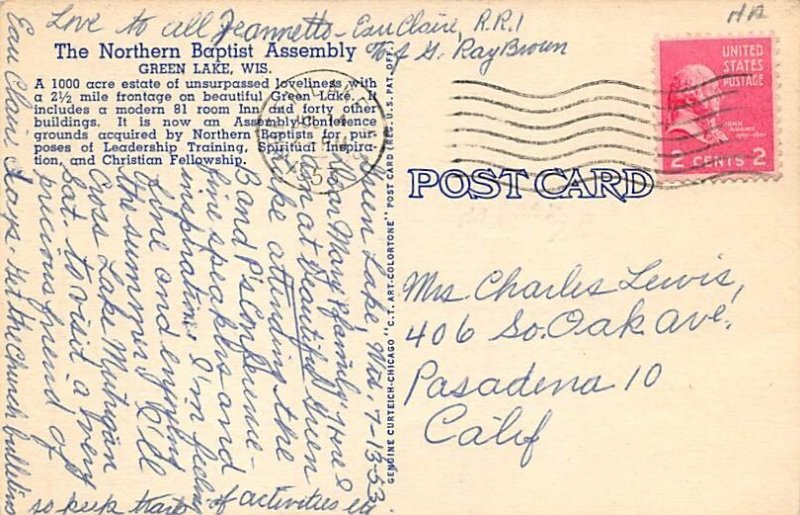 Love to all Jeannette - Eau Claire, R.R.1
% of G. Ray Brown
The Northern Baptist Assembly
GREEN LAKE, WIS.
A 1000 acre estate of unsurpassed loveliness with
a 2½ mile frontage on beautiful Green Lake. It
includes a modern 81 room Inn and forty other
buildings. It is now an Assembly-Conference
grounds acquired by Northern Baptists for pur-
poses of Leadership Training, Spiritual Inspira-
tion, and Christian Fellowship.
Green Lake, Wis. 7-13-53
Dear Mary & family: Here I
am at beautiful Green
Lake attending the
B and P's Conference-
fine speakers and
inspiration. I'm feeling
fine and enjoying
the summer. I'll
cross Lake Michigan
Sat. to visit a very
precious friend of
Eau Claire days. Get the church bulletins
so keep track of activities etc
GENUINE CURTEICH-CHICAGO "C.T. ART-COLORTONE" POST CARD (REG. U.S. PAT. OFF.)
POST CARD
UNITED
STATES
POSTAGE
JOHN
ADAMS
2 CENTS 2
Mrs. Charles Lewis,
406 So. Oak Ave.
Pasadena 10
Calif